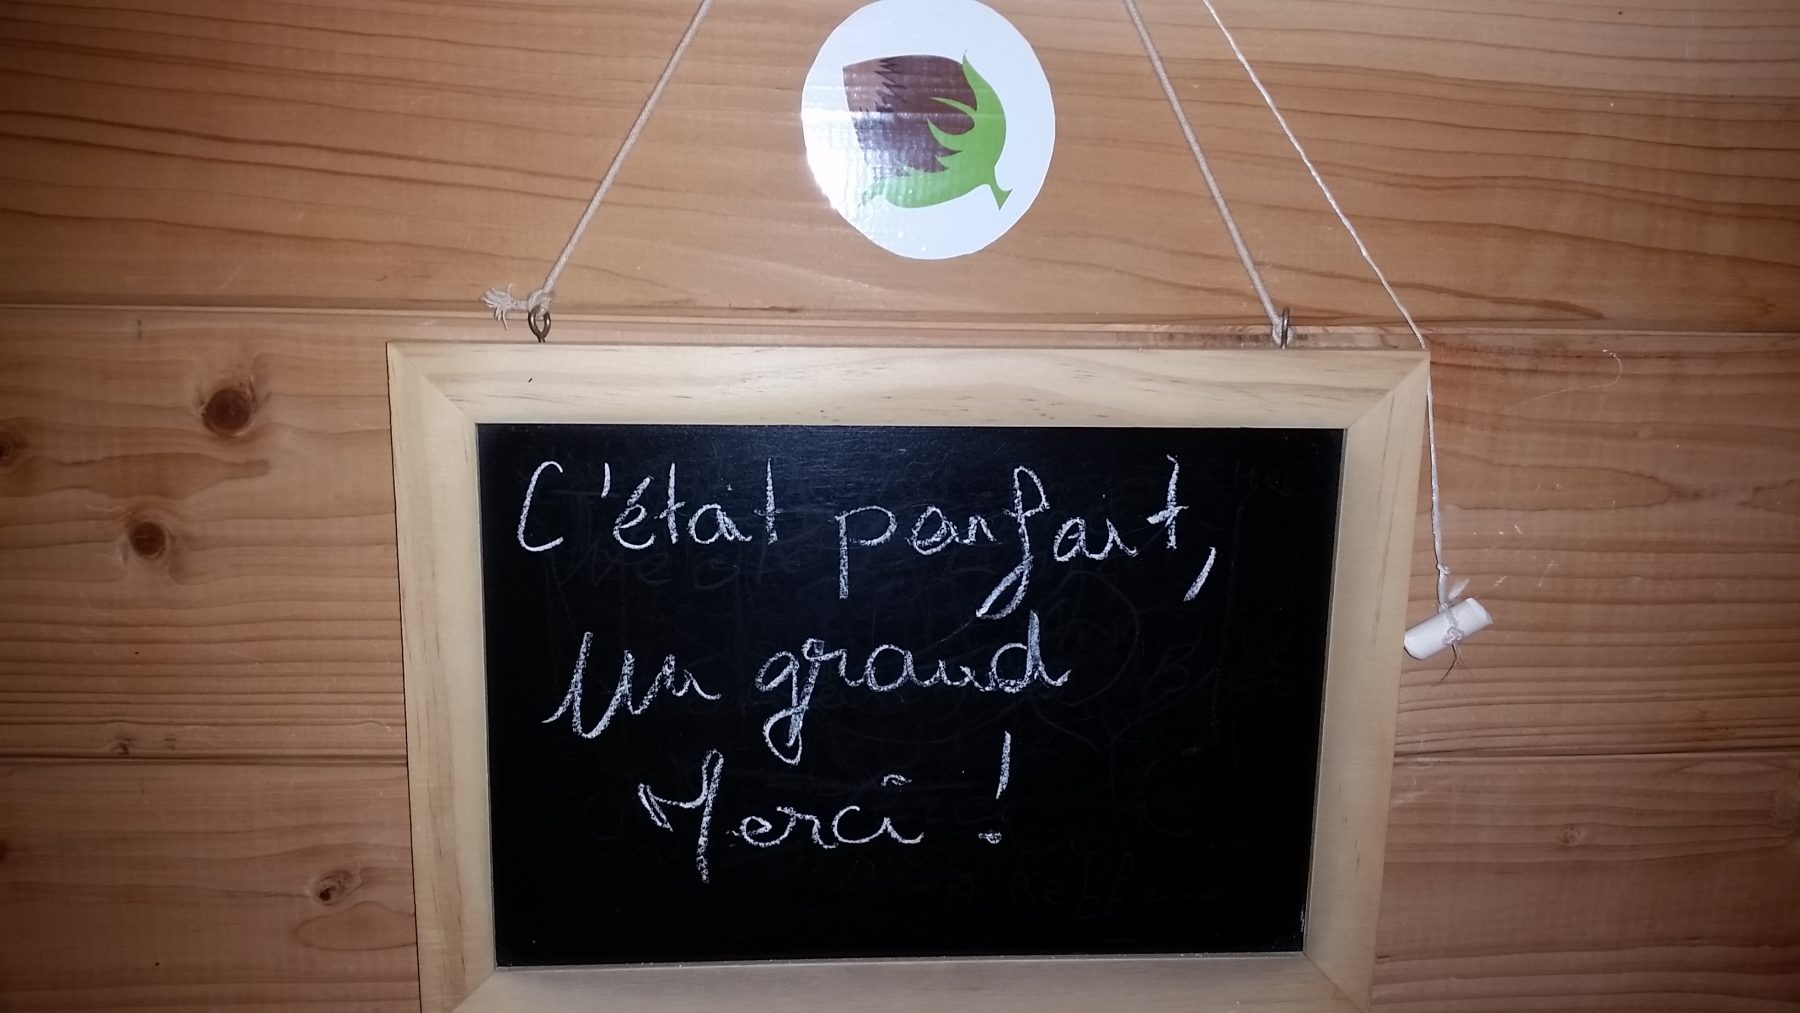 C'était parfait,
Un grand
Merci !